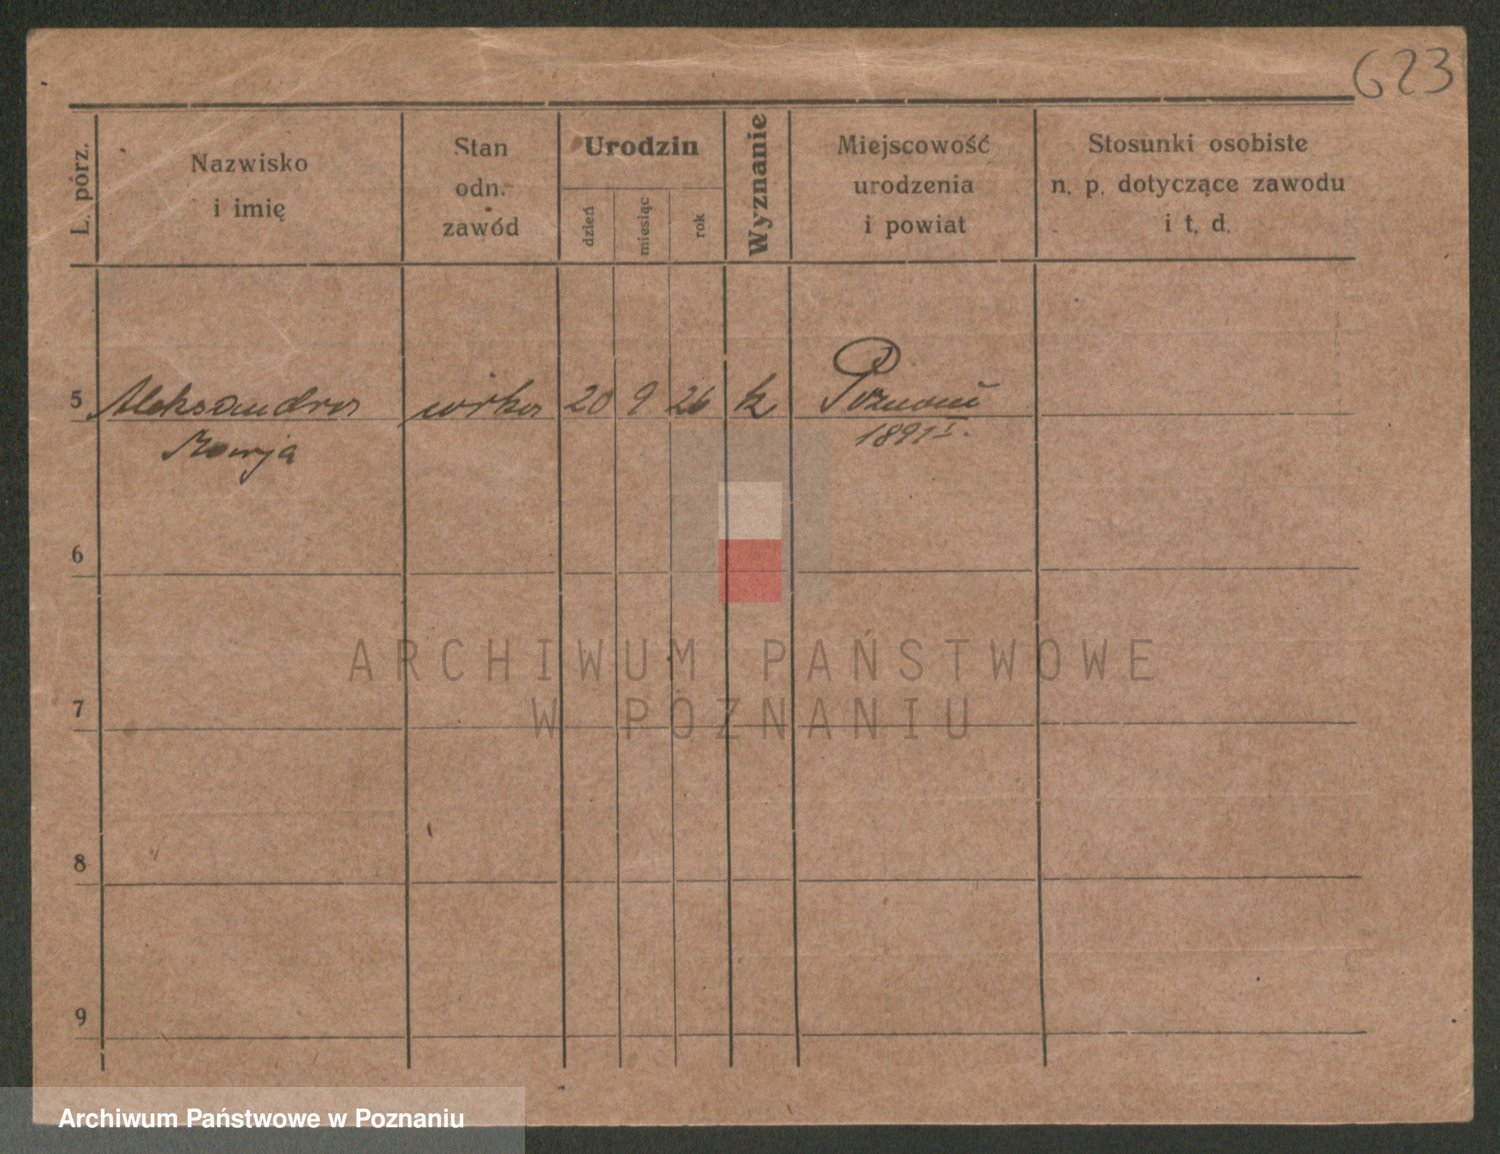 623
L. porz.
Nazwisko
i imię
Stan
odn.
zawód
Urodzin
dzień
miesiąc
rok
Wyznanie
Miejscowość
urodzenia
i powiat
Stosunki osobiste
n. p. dotyczące zawodu
i t. d.
5 Aleksandra córka 20 9 26 k Poznań
Marja 1891 I.
6
7
8
9
ARCHIWUM PAŃSTWOWE
W POZNANIU
Archiwum Państwowe w Poznaniu